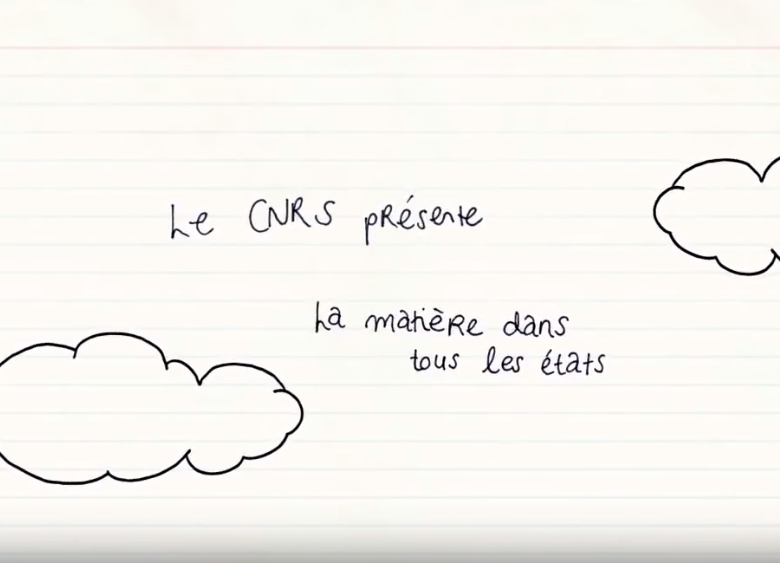 Le CNRS présente
La matière dans
tous les états